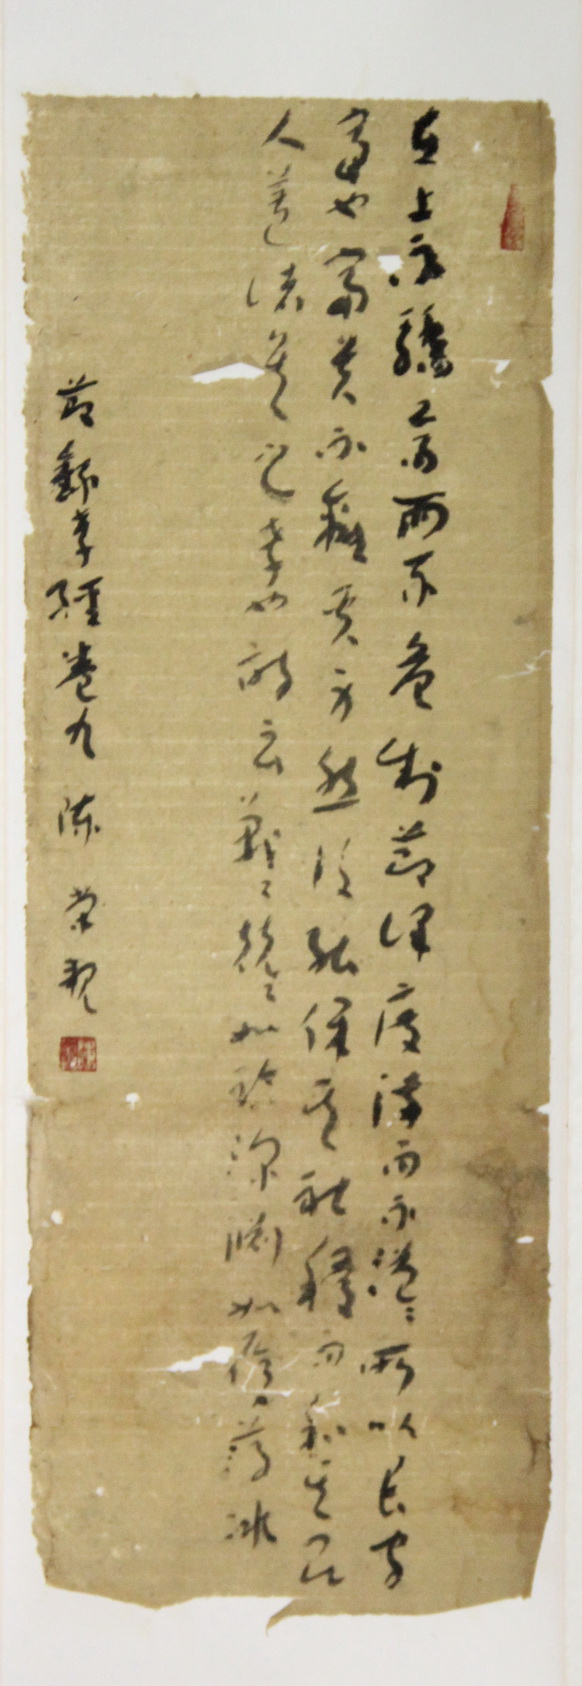 在上不驕高而不危制節謹度滿而不溢〻所以長守
富也富貴不離其身然後能保其社稷而和其民
人蓋諸侯之孝也詩云戰〻兢〻如臨深淵如履薄冰
節錄孝經卷九 陳榮